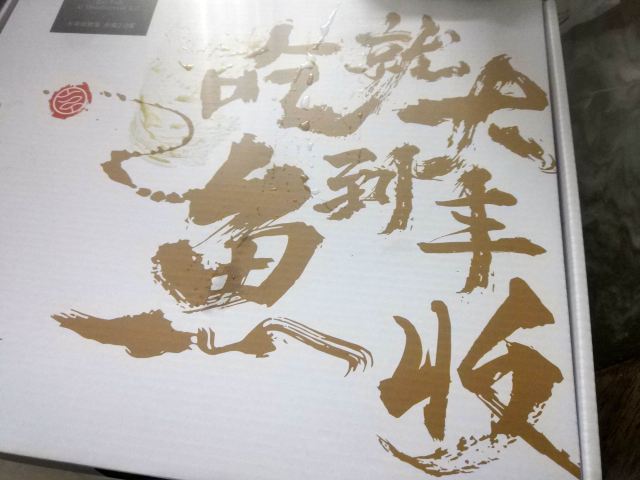 吃鱼
就到
大丰收